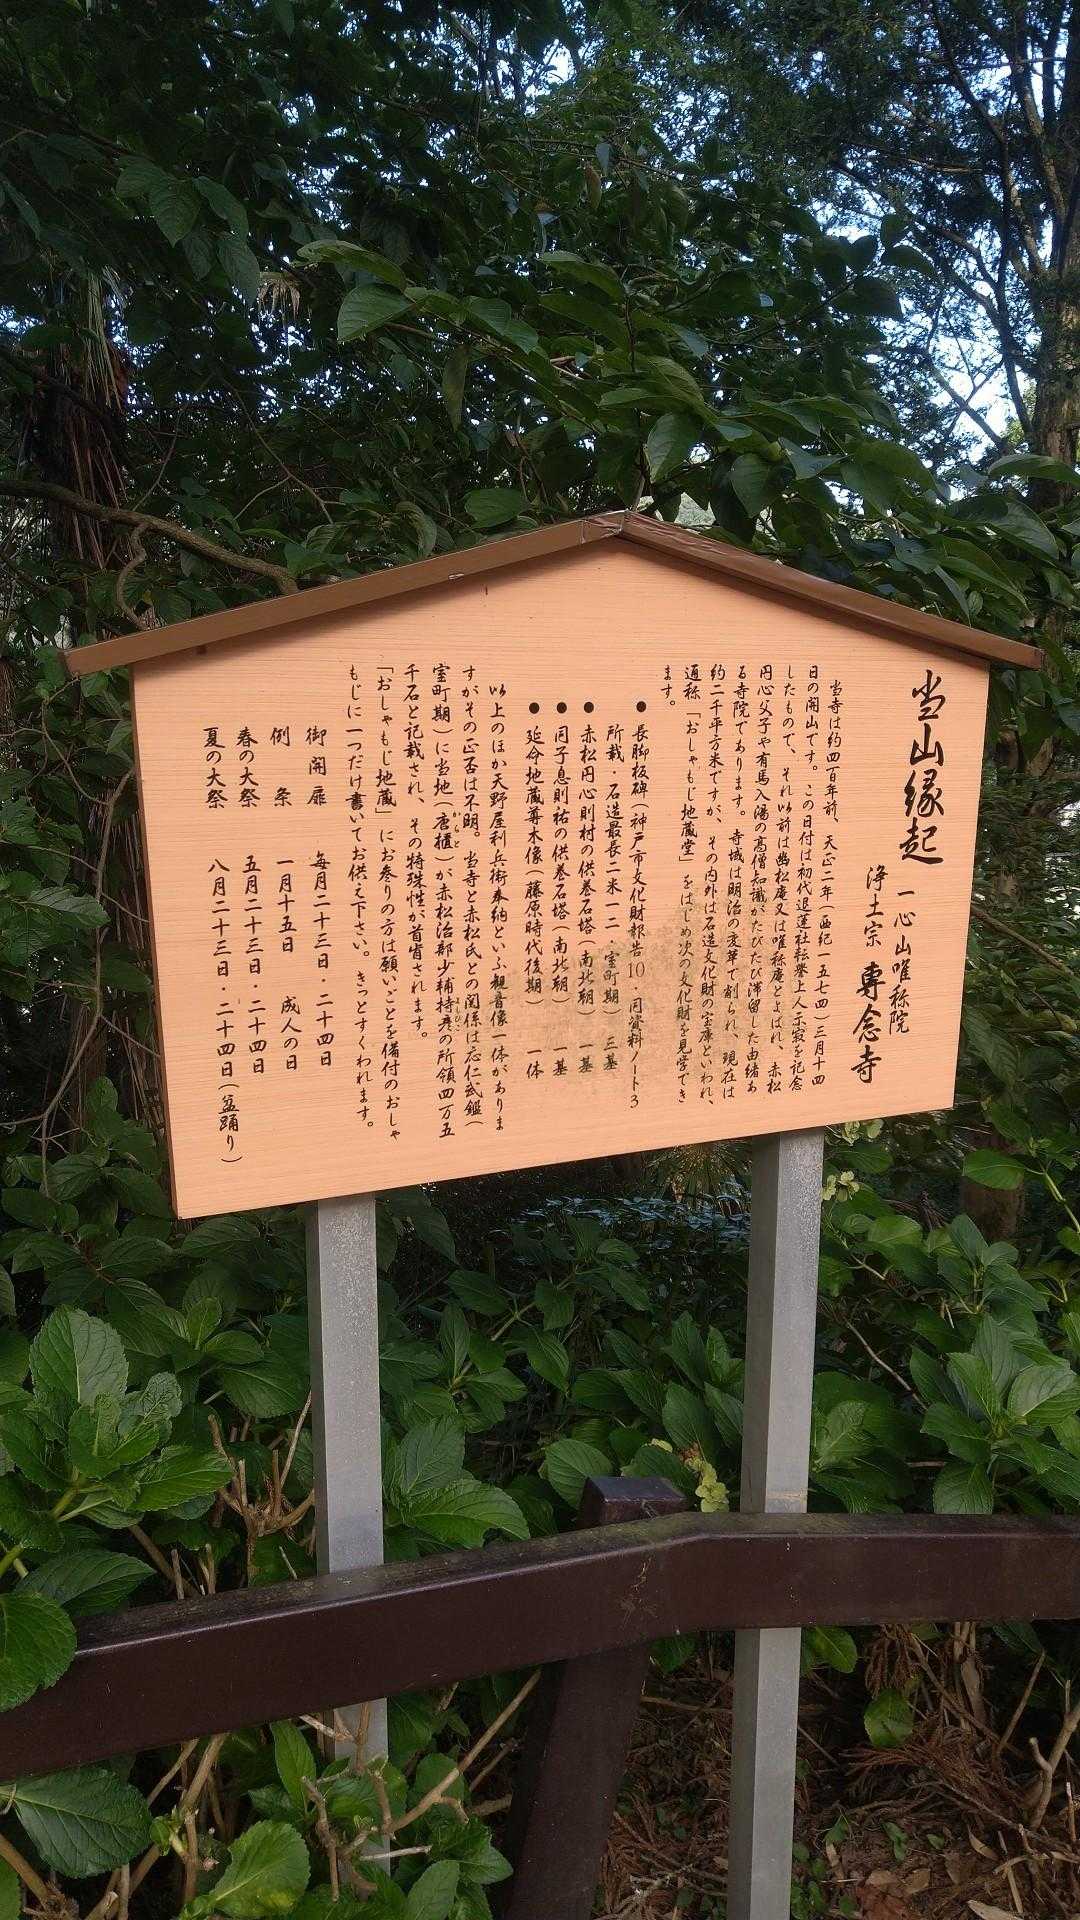 当山縁起
一心山唯称院
浄土宗 専念寺
当寺は約四百年前、天正二年(西紀一五七四)三月十四
日の開山です。この日付は初代退蓮社転誉上人示寂を記念
したもので、それ以前は幽松庵又は唯称庵とよばれ、赤松
円心父子や有馬入湯の高僧知識がたびたび滞留した由緒あ
る寺院であります。寺域は明治の変革で割られ、現在は
約二千平方米ですが、その内外は石造文化財の宝庫といわれ、
通称「おしゃもじ地蔵堂」をはじめ次の文化財を見学でき
ます。
● 長脚板碑(神戸市文化財報告10・同資料ノート3
所載・石造最長二米一二・室町期) 三基
● 赤松円心則村の供養石塔(南北朝) 一基
● 同子息則祐の供養石塔(南北朝) 一基
● 延命地蔵尊木像(藤原時代後期) 一体
以上のほか天野屋利兵衛奉納といふ観音像一体がありま
すがその正否は不明。当寺と赤松氏との関係は応仁武鑑(
室町期)に当地(唐櫃からと)が赤松治部少輔持彦もちひこの所領四万五
千石と記載され、その特殊性が首肯されます。
「おしゃもじ地蔵」にお参りの方は願いごとを備付のおしゃ
もじに一つだけ書いてお供え下さい。きっとすくわれます。
御開扉 毎月二十三日・二十四日
例祭 一月十五日 成人の日
春の大祭 五月二十三日・二十四日
夏の大祭 八月二十三日・二十四日(盆踊り)